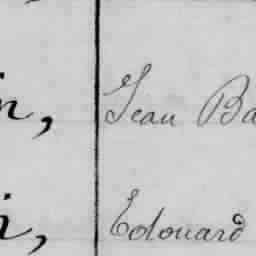 n, Jean Ba
i, Edouard